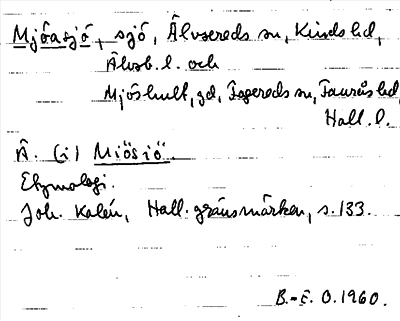 Mjöasjö, sjö, Älvsereds sn, Kinds hd,
Älvsb. l. och
Mjöshult, gd, Fagereds sn, Faurås hd,
Hall. l.
A. (i) Miösiö.
Etymologi.
Joh. Kalén, Hall. gränsmärken, s. 133.
B.-E. O. 1960.